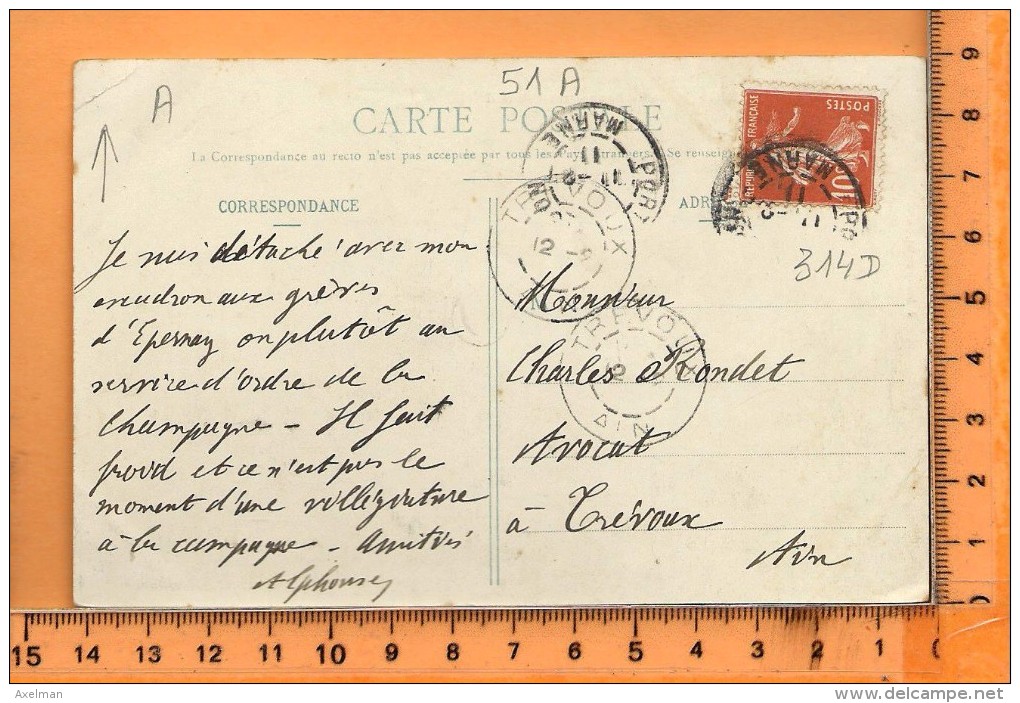 51 A
A
CARTE POSTALE
La Correspondance au recto n'est pas acceptée par tous les Pays étrangers. Se renseigner
CORRESPONDANCE
Je suis détaché avec mon
escadron aux grèves
d'Epernay ou plutôt au
service d'ordre de la
Champagne - Il fait
froid et ce n'est pas le
moment d'une villégiature
à la campagne - Amitiés
Alphonse
ADR
314D
Monsieur
Charles Rondet
Avocat
à Trévoux
Ain
POSTES
FRANÇAISE
10
MARNE
11
MARNE
11
TREVOUX
12
TREVOUX
AIN
9
8
7
6
5
4
3
2
1
0
15 14 13 12 11 10 9 8 7 6 5 4 3 2 1 0
Axelman
www.delcampe.net